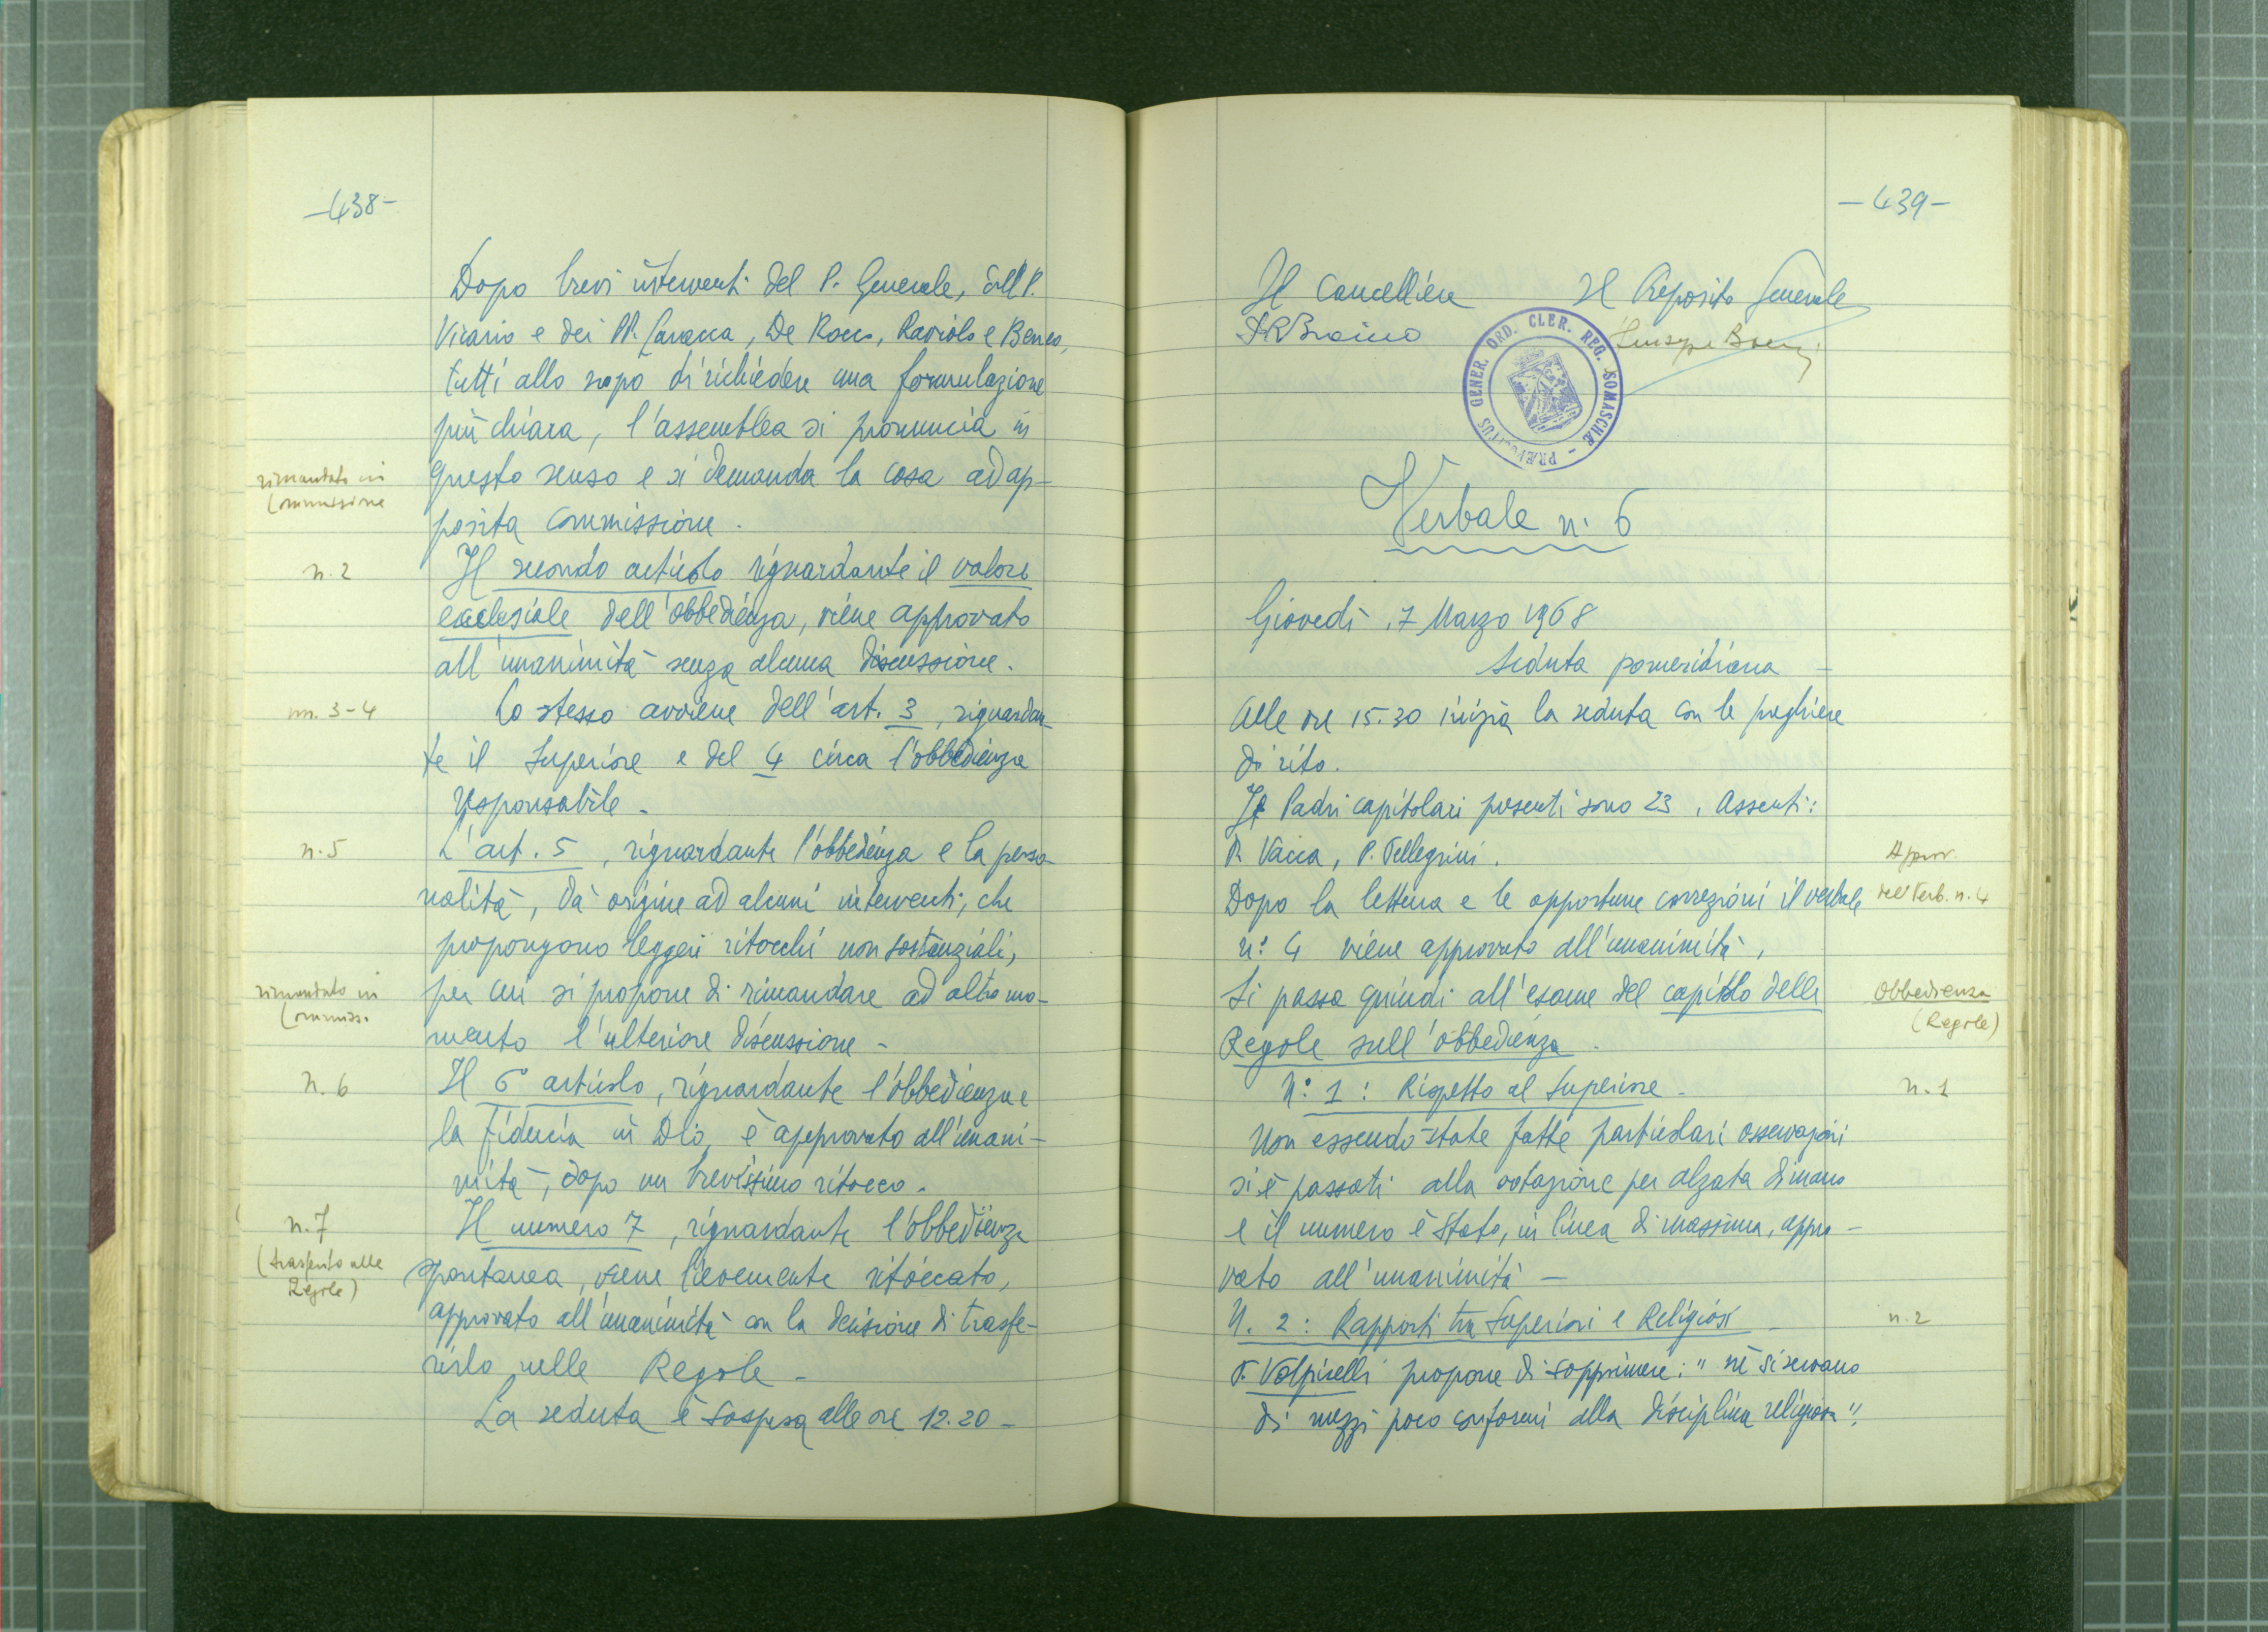 -438-
Dopo brevi interventi del P. Generale, del P.
Vicario e dei PP. Caracca, De Rocco, Raviolo e Beneo,
tutti allo scopo di richiedere una formulazione
più chiara, l'assemblea si pronuncia in
rimandato in
Commissione
questo senso e si demanda la cosa ad ap-
posita commissione.
n. 2
Il secondo articolo riguardante il valore
ecclesiale dell'obbedienza, viene approvato
all'unanimità senza alcuna discussione.
nn. 3-4
Lo stesso avviene dell'art. 3, riguardan-
te il Superiore e del 4 circa l'obbedienza
responsabile -
n. 5
L'art. 5, riguardante l'obbedienza e la perso-
nalità, dà origine ad alcuni interventi, che
propongono leggeri ritocchi non sostanziali,
rimandato in
Commiss.
per cui si propone di rimandare ad altro mo-
mento l'ulteriore discussione -
n. 6
Il 6° articolo, riguardante l'obbedienza e
la fiducia in Dio, è approvato all'unani-
mità, dopo un brevissimo ritocco.
n. 7
(trasferito alle
Regole)
Il numero 7, riguardante l'obbedienza
spontanea, viene lievemente ritoccato,
approvato all'unanimità con la decisione di trasfe-
rirlo nelle Regole -
La seduta è sospesa alle ore 12.20 -
-439-
Il Cancelliere Il Preposito Generale
Giuseppe
PRÆPOSITUS GENER. ORD. CLER. REG. SOMASCHÆ
Verbale n. 6
Giovedì, 7 Marzo 1968
seduta pomeridiana -
Alle ore 15.30 inizia la seduta con le preghiere
di rito.
I Padri capitolari presenti sono 23. Assenti:
P. Vacca, P. Pellegrini.
Approv.
del Verb. n. 4
Dopo la lettura e le opportune correzioni il verbale
n: 4 viene approvato all'unanimità.
Si passa quindi all'esame del capitolo delle
Obbedienza
(Regole)
Regole sull'obbedienza.
n. 1
N: 1: Rispetto al Superiore -
Non essendo state fatte particolari osservazioni
si è passati alla votazione per alzata di mano
e il numero è stato, in linea di massima, appro-
vato all'unanimità -
n. 2
N. 2: Rapporti tra Superiori e Religiosi -
P. Volpicelli propone di sopprimere: "nè si servano
di mezzi poco conformi alla disciplina religiosa".